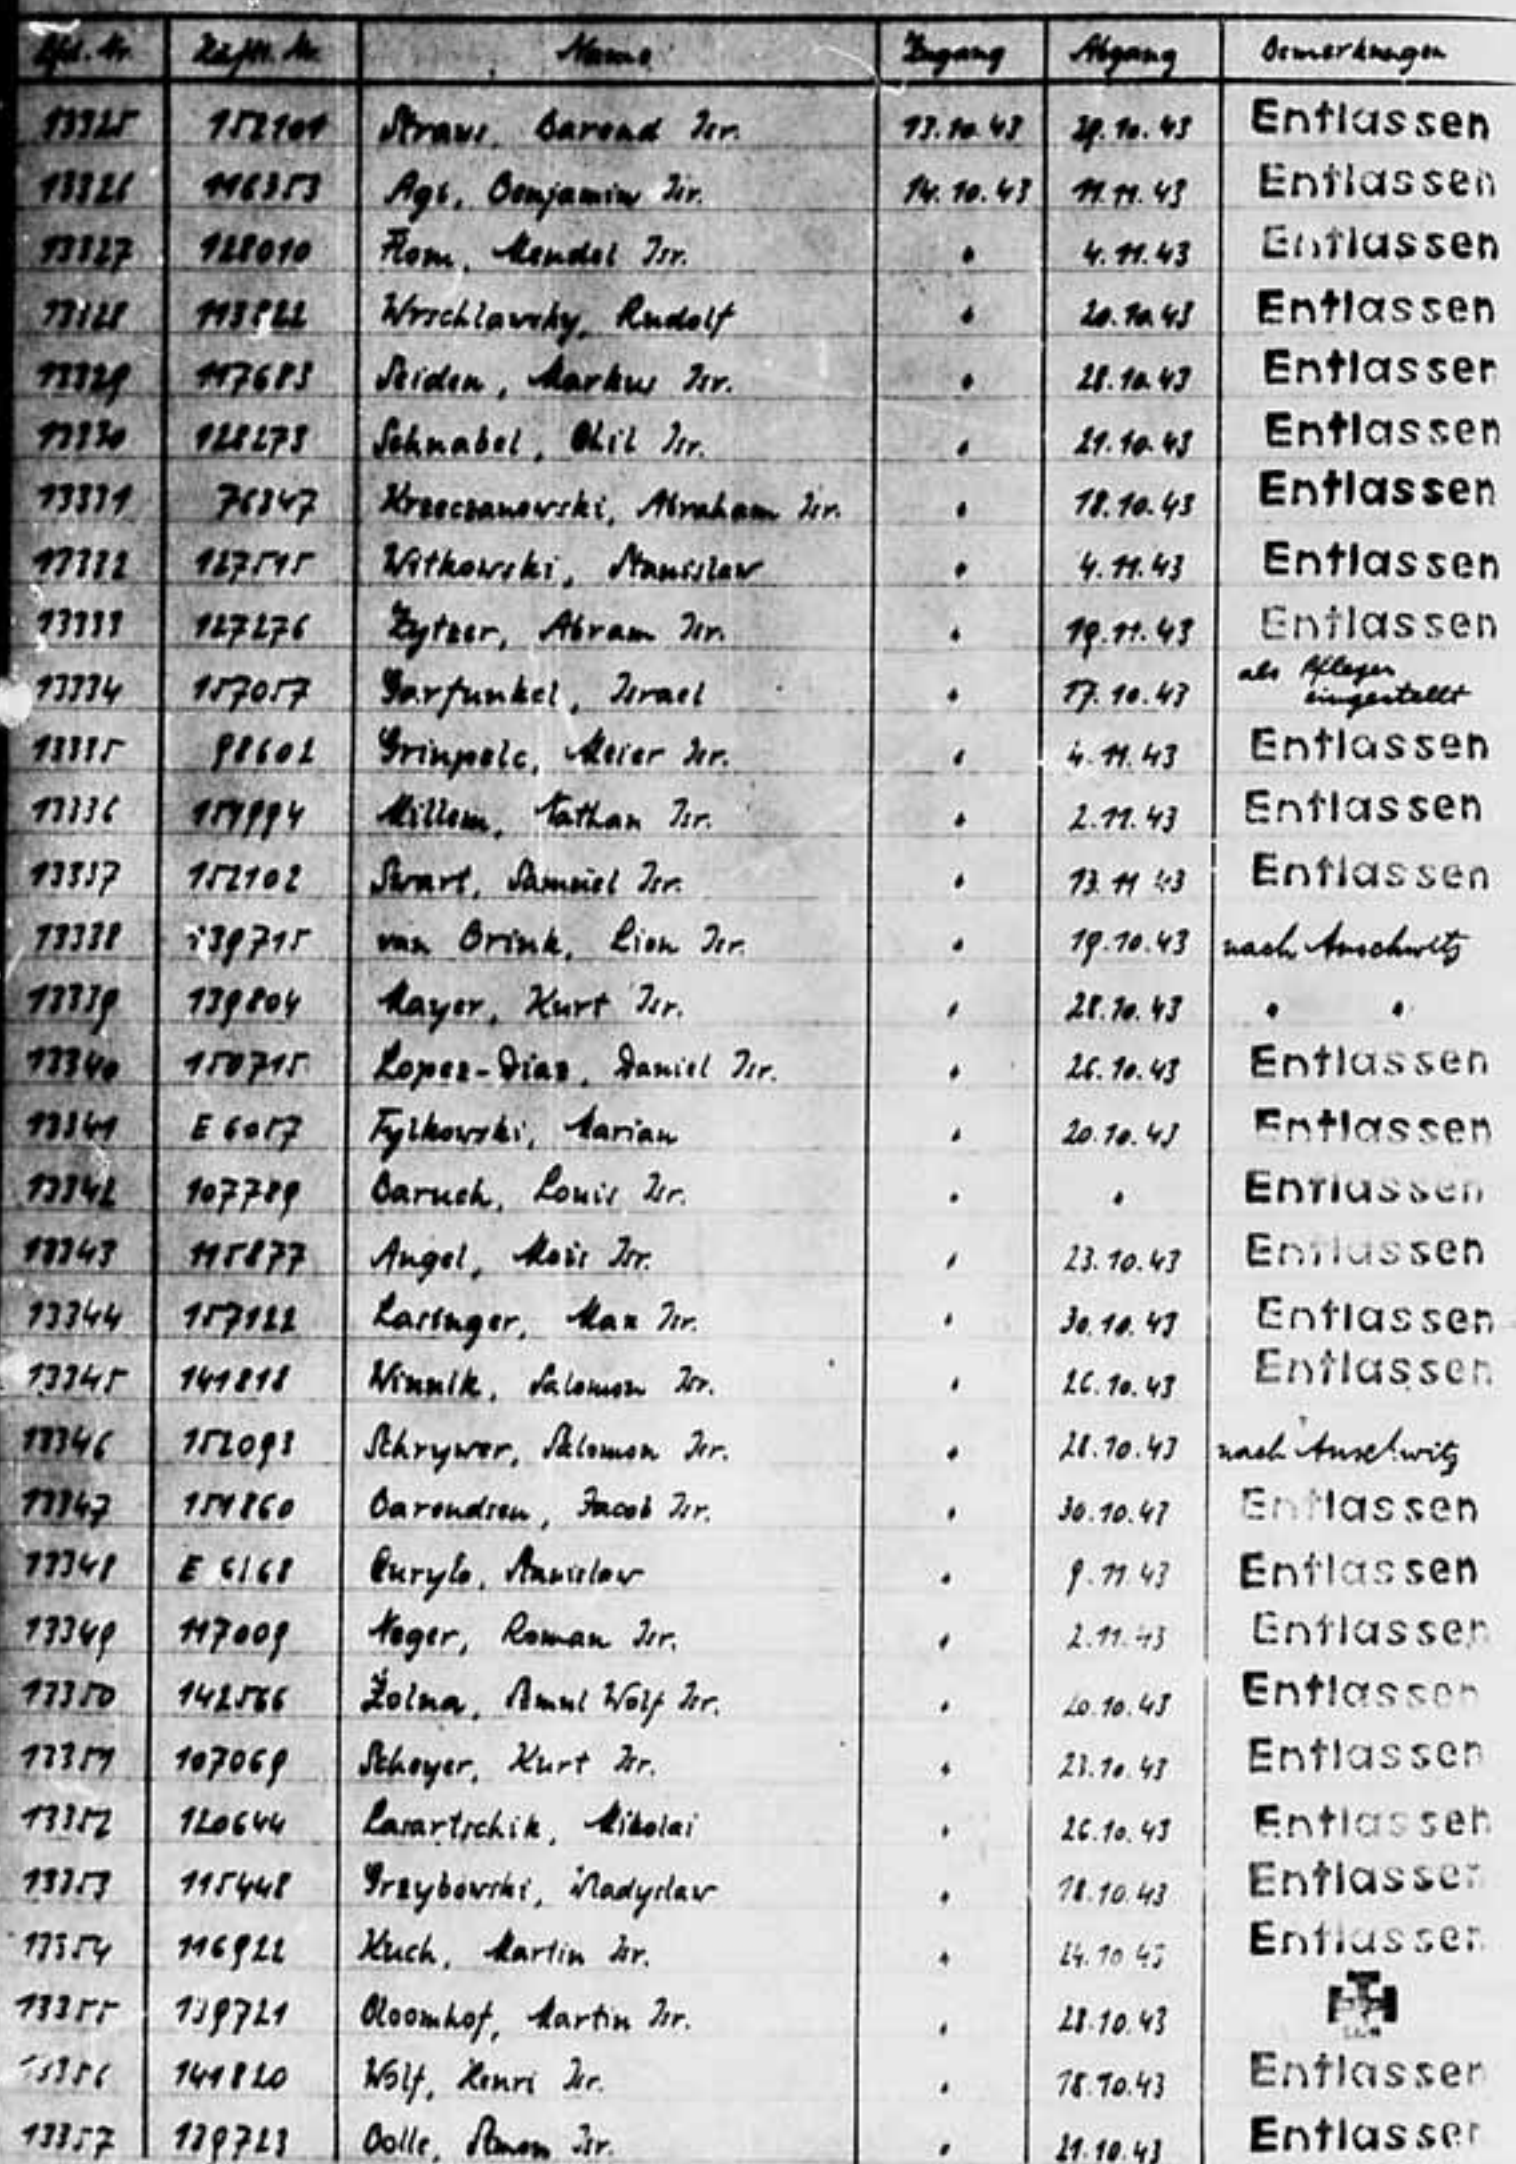 Lfd. Nr. Häftl. Nr. Name Zugang Abgang Bemerkungen
13325 152101 Straus, Barend Isr. 13.10.43 29.10.43 Entlassen
13326 116353 Agi, Benjamin Isr. 14.10.43 11.11.43 Entlassen
13327 128010 Flom, Mendel Isr. " 4.11.43 Entlassen
13328 113822 Wrschlawsky, Rudolf " 20.10.43 Entlassen
13329 117683 Seiden, Markus Isr. " 28.10.43 Entlassen
13330 128273 Schnabel, Chil Isr. " 21.10.43 Entlassen
13331 76347 Krzeczanowski, Abraham Isr. " 18.10.43 Entlassen
13332 127515 Witkowski, Stanislaw " 4.11.43 Entlassen
13333 127276 Zytzer, Abram Isr. " 19.11.43 Entlassen
13334 157057 Garfunkel, Israel " 17.10.43 als Pfleger
eingestellt
13335 98602 Grinpelc, Meier Isr. " 4.11.43 Entlassen
13336 151994 Millem, Nathan Isr. " 2.11.43 Entlassen
13337 152102 Swart, Samuel Isr. " 13.11.43 Entlassen
13338 139715 van Brink, Lion Isr. " 19.10.43 nach Auschwitz
13339 139804 Mayer, Kurt Isr. " 28.10.43 " "
13340 150715 Lopes-Dias, Daniel Isr. " 26.10.43 Entlassen
13341 E 6057 Fylkowski, Marian " 20.10.43 Entlassen
13342 107789 Baruch, Louis Isr. " " Entlassen
13343 115877 Angel, Mois Isr. " 23.10.43 Entlassen
13344 157122 Lasinger, Max Isr. " 30.10.43 Entlassen
13345 141818 Winnik, Salomon Isr. " 26.10.43 Entlassen
13346 152093 Schrywer, Salomon Isr. " 28.10.43 nach Auschwitz
13347 151860 Barendsen, Jacob Isr. " 30.10.43 Entlassen
13348 E 6168 Curylo, Stanislaw " 9.11.43 Entlassen
13349 117009 Neger, Roman Isr. " 2.11.43 Entlassen
13350 142566 Zolna, Wolf Isr. " 20.10.43 Entlassen
13351 107069 Scheyer, Kurt Isr. " 23.10.43 Entlassen
13352 120644 Lasartschik, Nikolai " 26.10.43 Entlassen
13353 115448 Grzybowski, Wladyslaw " 18.10.43 Entlassen
13354 116922 Kuch, Martin Isr. " 24.10.43 Entlassen
13355 139721 Bloomhof, Martin Isr. " 28.10.43
13356 141820 Wolf, Henri Isr. " 18.10.43 Entlassen
13357 139723 Bolle, Simon Isr. " 21.10.43 Entlassen